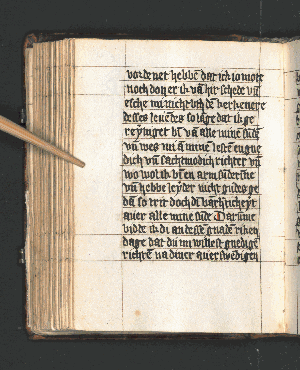 vordenet hebbe dat ick io mote
noch don er ik va hir schede vn
esche mi nicht vth de kerkenere
desses leuedes so lage dat ik ge
reyniget bi va alle mine sude
vn wes mi a mine leste en gne
dich vn sachtmodich richter vn
wo wol ik bi en arm suderine
vn hebbe leyder nicht gudes ge
da so vrir doch di barmhicheyt
auer alle mine sude Darume
bidde ik di an desse gnade riken
dage dat du mi willest gnedige
richte na diner auerswedigen